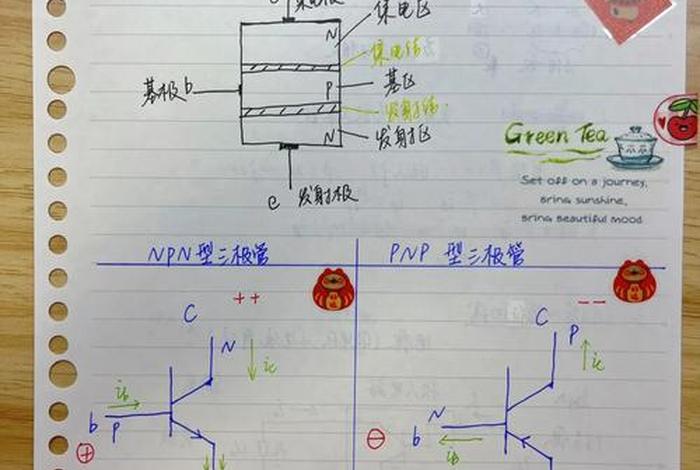 N
集电区
集电结
基极 b
P
基区
发射结
N
发射区
e 发射极
Green Tea
Set off on a journey,
Bring sunshine,
Bring beautiful mood
NPN型三极管
PNP 型三极管
++
--
C
N
ic
ib
b
P
+
C
P
ic
N
b
ib
-